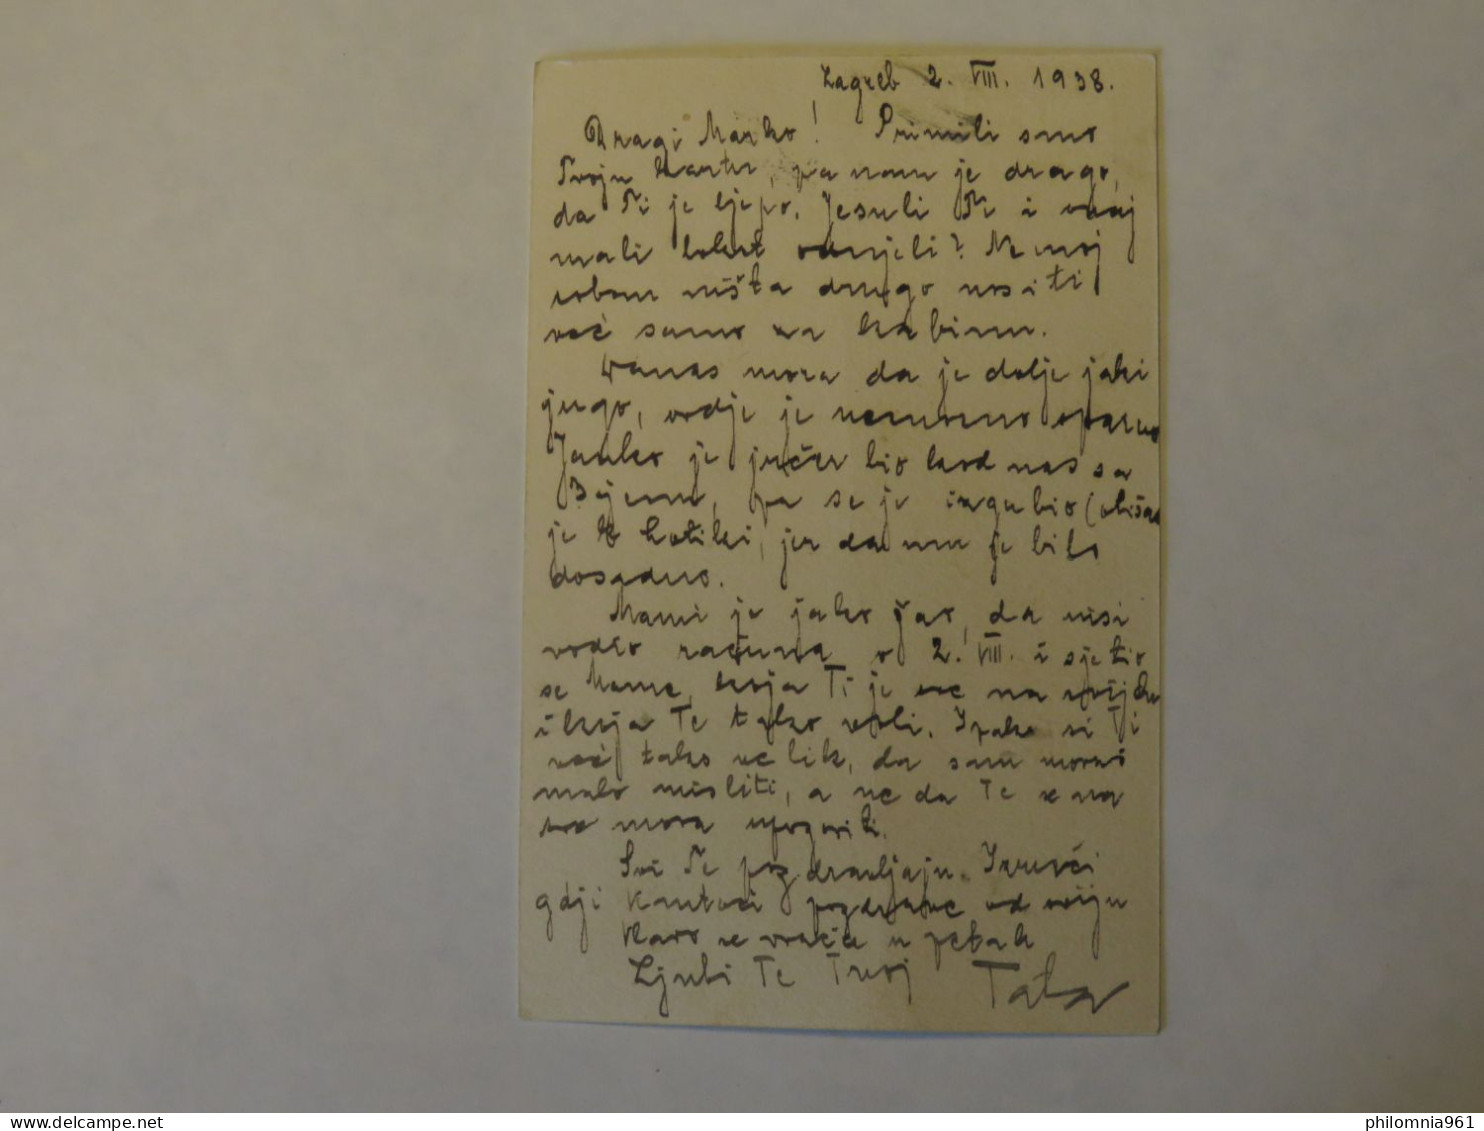 Zagreb 2. VIII. 1938.
Dragi Marko! Primili smo
Tvoju kartu, pa nam je drago,
da Ti je ljepo. Jesu li Te i onaj
mali odnjeli? Nemoj
sobom ništa drugo nositi
već samo za kabinu.
Danas mora da je dolje jaki
jugo, ovdje je sparno
Janko je jučer bio kod nas sa
pa se je izgubio (otišao
je k kotiki, jer da mu je bilo
dosadno.
Mami je jako žao, da nisi
vodio računa o 2. VIII. i sjetio
se Mame, koja Ti je sve na svijetu
i koja Te tako voli. Ipak si Ti
već tako velik, da sam moraš
malo misliti, a ne da Te se na
sve mora upozoriti.
Svi Te pozdravljaju. Izruči
gdji pozdrave od sviju
se vraća u petak
Ljubi Te Tvoj Tata
delcampe.net
philomnia961